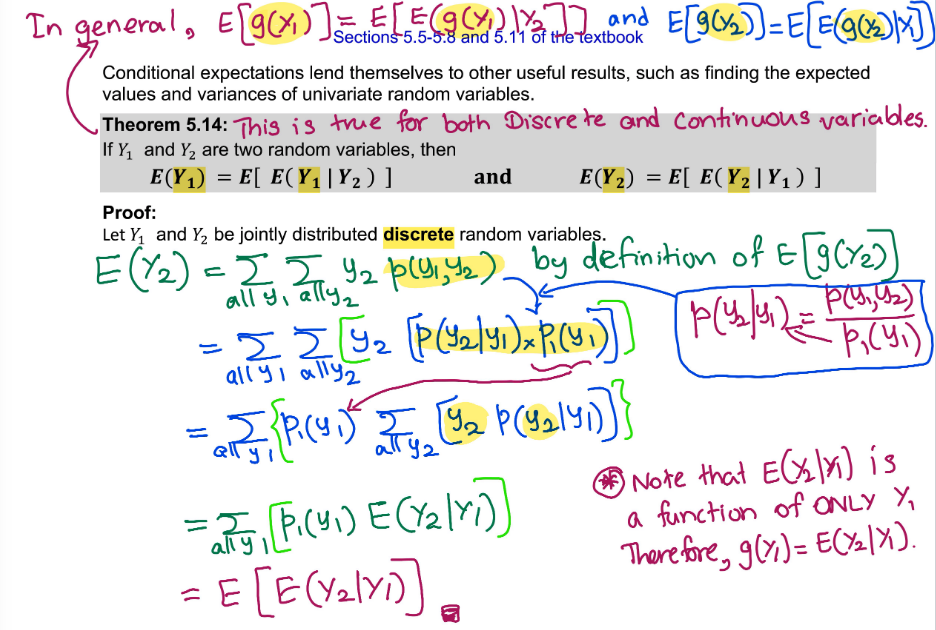 In general, E[g(Y₁)] = E[E(g(Y₁)|Y₂)] and E[g(Y₂)] = E[E(g(Y₂)|Y₁)]
Sections 5.5-5.8 and 5.11 of the textbook
Conditional expectations lend themselves to other useful results, such as finding the expected
values and variances of univariate random variables.
Theorem 5.14: This is true for both Discrete and Continuous variables.
If Y₁ and Y₂ are two random variables, then
E(Y₁) = E[ E( Y₁ | Y₂ ) ] and E(Y₂) = E[ E( Y₂ | Y₁ ) ]
Proof:
Let Y₁ and Y₂ be jointly distributed discrete random variables.
E(Y₂) = Σ Σ y₂ p(y₁,y₂) by definition of E[g(Y₂)]
all y₁ all y₂
p(y₂|y₁) = p(y₁,y₂)/p₁(y₁)
= Σ Σ [y₂ [p(y₂|y₁) × p₁(y₁)]]
all y₁ all y₂
= Σ {p₁(y₁) Σ [y₂ p(y₂|y₁)]}
all y₁ all y₂
= Σ [p₁(y₁) E(Y₂|Y₁)]
all y₁
= E[E(Y₂|Y₁)]
* Note that E(Y₂|Y₁) is
a function of ONLY Y₁
Therefore, g(Y₁) = E(Y₂|Y₁).